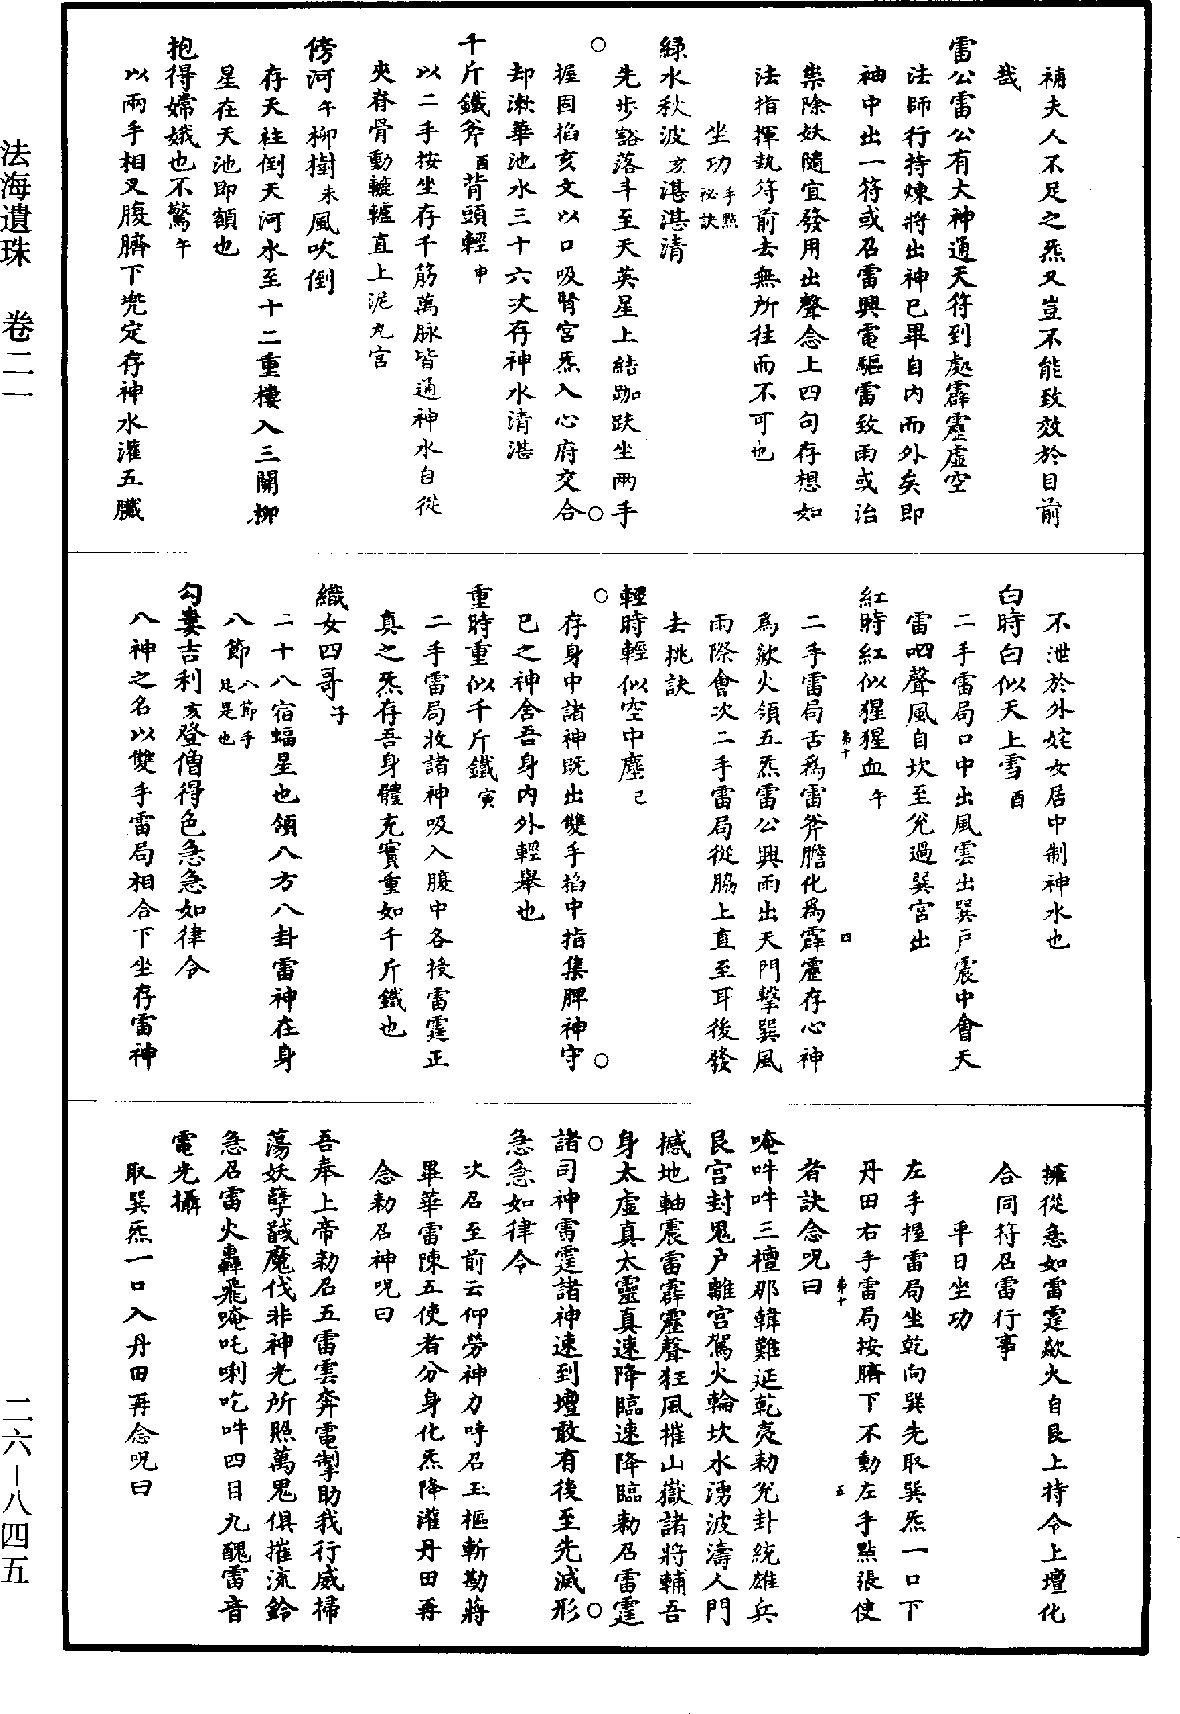 法海遺珠　卷二一
二六－八四五
補夫人不足之炁又豈不能致效於目前
哉
雷公雷公有大神通天符到處霹靂虛空
法師行持煉將出神已畢自內而外矣即
袖中出一符或召雷興電驅雷致雨或治
祟除妖隨宜發用出聲念上四句存想如
法指揮執符前去無所往而不可也
坐功手點祕訣
綠水秋波亥湛湛清
先步豁落斗至天英星上結跏趺坐兩手
握固掐亥文以口吸腎宮炁入心府交合
却漱華池水三十六次存神水清湛
千斤鐵斧酉背頭輕申
以二手按坐存千筋萬脉皆通神水自從
夾脊骨動轆轤直上泥丸宮
傍河午柳樹未風吹倒
存天柱倒天河水至十二重樓入三關柳
星在天池即額也
抱得嫦娥也不驚午
以兩手相叉腹臍下兜定存神水灌五臟
不泄於外姹女居中制神水也
白時白似天上雪酉
二手雷局口中出風雲出巽戶震中會天
雷呬聲風自坎至兌過巽宮出
紅時紅似猩猩血午
二手雷局舌為雷斧膽化為霹靂存心神
為歘火領五炁雷公興雨出天門擊巽風
雨際會次二手雷局從脇上直至耳後發
去挑訣
輕時輕似空中塵己
存身中諸神既出雙手掐中指集脾神守
已之神舍吾身內外輕舉也
重時重似千斤鐵寅
二手雷局收諸神吸入腹中各授雷霆正
真之炁存吾身體充實重如千斤鐵也
織女四哥子
二十八宿蝠星也領八方八卦雷神在身
八節八節手足是也
勾婁吉利亥登僧得色急急如律令
八神之名以雙手雷局相合下坐存雷神
擁從急如雷霆歘火自艮上持令上壇化
合同符召雷行事
平日坐功
左手握雷局坐乾向巽先取巽炁一口下
丹田右手雷局按臍下不動左手點張使
者訣念呪曰
唵吽吽三檀那韓難延乾亮勑兌卦統雄兵
艮宮封鬼戶離宮駕火輪坎水湧波濤人門
撼地軸震雷霹靂聲狂風摧山嶽諸將輔吾
身太虛真太靈真速降臨速降臨勑召雷霆
諸司神雷霆諸神速到壇敢有後至先滅形
急急如律令
次召至前云仰勞神力呼召玉樞斬勘蔣
畢華雷陳五使者分身化炁降灌丹田再
念勑召神呪曰
吾奉上帝勑召五雷雲奔電掣助我行威掃
蕩妖孽馘魔伐非神光所照萬鬼俱摧流鈴
急召雷火轟飛唵吒唎吃吽四目九醜雷音
電光攝
取巽炁一口入丹田再念呪曰